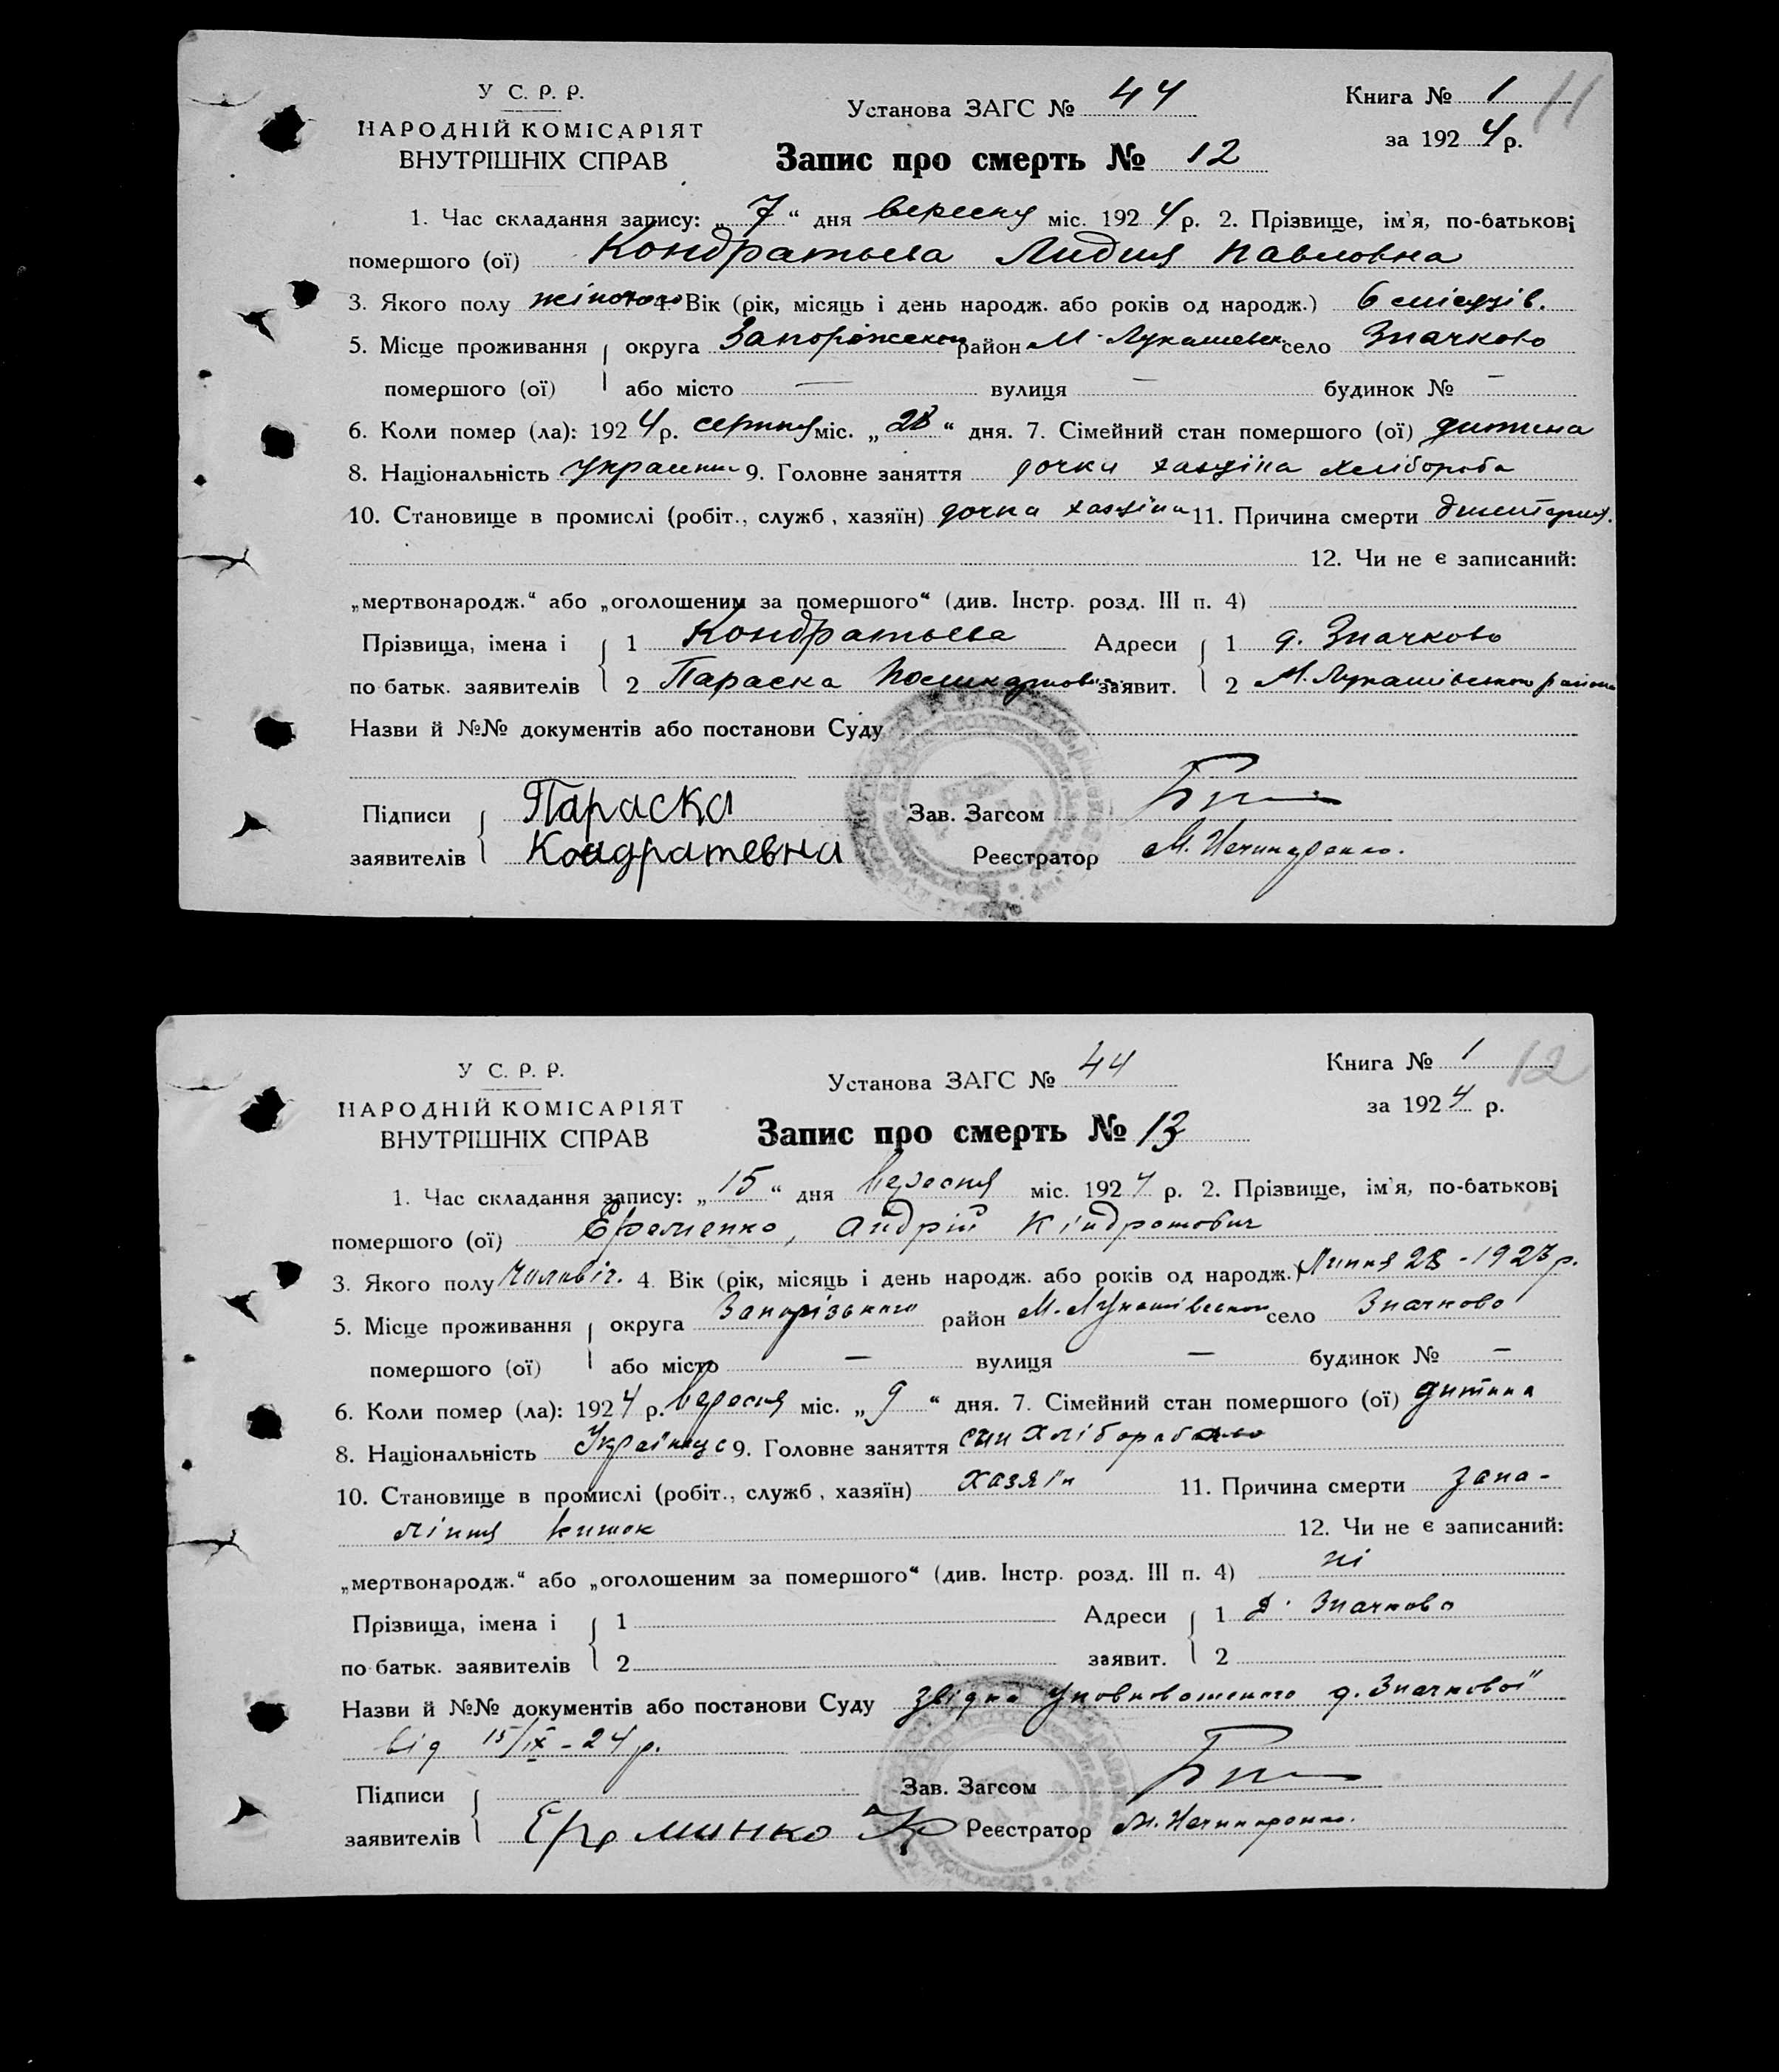 У С. Р. Р.
НАРОДНІЙ КОМІСАРІЯТ
ВНУТРІШНІХ СПРАВ
Установа ЗАГС № 44
Запис про смерть № 12
Книга № 1 11
за 1924 р.
1. Час складання запису: „7“ дня вересня міс. 1924 р. 2. Прізвище, ім'я, по-батькові
помершого (ої) Кондратьева Лидия Павловна
3. Якого полу жіночого 4. Вік (рік, місяць і день народж. або років од народж.) 6 місяців.
5. Місце проживання округа Запоріжської район М-Лукашевск село Значково
помершого (ої) або місто — вулиця — будинок № —
6. Коли помер (ла): 1924 р. серпня міс. „28“ дня. 7. Сімейний стан помершого (ої) дитина
8. Національність Украинка 9. Головне заняття дочка хазяїна хлібороба
10. Становище в промислі (робіт., служб., хазяїн) дочка хазяїна 11. Причина смерти дизентерия.
12. Чи не є записаний:
„мертвонародж.“ або „оголошеним за помершого“ (див. Інстр. розд. III п. 4)
Прізвища, імена і 1 Кондратьева Адреси 1 д. Значково
по батьк. заявителів 2 Параска заявит. 2 М. Лукашівського района
Назви й №№ документів або постанови Суду
Підписи Параска Зав. Загсом
заявителів Кондратевна Реєстратор М. Нечипоренко.
У С. Р. Р.
НАРОДНІЙ КОМІСАРІЯТ
ВНУТРІШНІХ СПРАВ
Установа ЗАГС № 44
Запис про смерть № 13
Книга № 1 12
за 1924 р.
1. Час складання запису: „15“ дня вересня міс. 1924 р. 2. Прізвище, ім'я, по-батькові
помершого (ої) Єременко, Андрій Кіндратович
3. Якого полу чоловіч. 4. Вік (рік, місяць і день народж. або років од народж.) Липня 28 - 1923 р.
5. Місце проживання округа Запорізького район М-Лукашівського село Значково
помершого (ої) або місто — вулиця — будинок № —
6. Коли помер (ла): 1924 р. вересня міс. „9“ дня. 7. Сімейний стан помершого (ої) дитина
8. Національність Українец 9. Головне заняття син хлібороба
10. Становище в промислі (робіт., служб., хазяїн) хазяїн 11. Причина смерти запа-
ління кишок 12. Чи не є записаний:
„мертвонародж.“ або „оголошеним за помершого“ (див. Інстр. розд. III п. 4) ні
Прізвища, імена і 1 Адреси 1 д. Значково
по батьк. заявителів 2 заявит. 2
Назви й №№ документів або постанови Суду звідка уповноваженого д. Значкової
від 15/IX - 24 р.
Підписи Зав. Загсом
заявителів Ерминко К Реєстратор М. Нечипоренко.